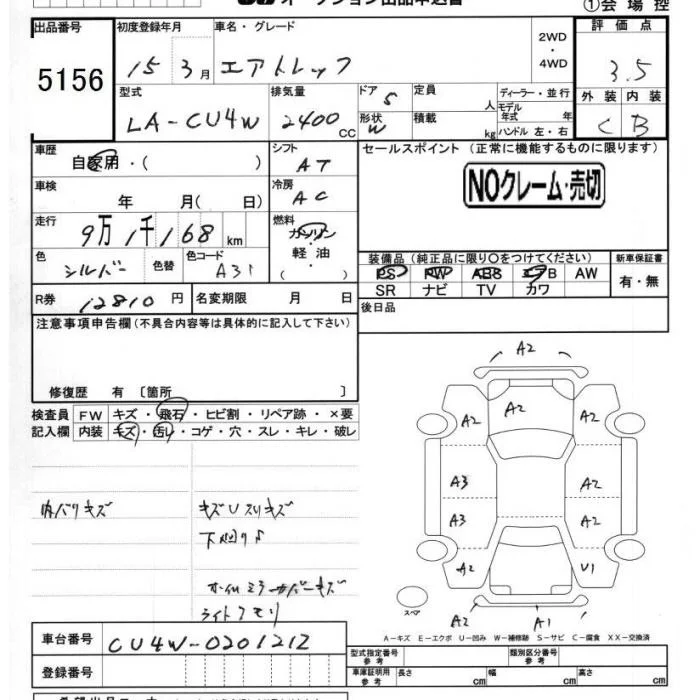 オークション出品申込書
①会場控
出品番号
5156
初度登録年月
15 3月
車名・グレード
エアトレック
2WD
・
4WD
評価点
3.5
型式
LA-CU4W
排気量
2400 CC
ドア
5
形状
W
定員
人
積載
kg
ディーラー・並行
モデル年式 年
ハンドル 左・右
外装 内装
C B
車歴
自家用・( )
シフト
AT
セールスポイント (正常に機能するものに限ります)
NOクレーム・売切
車検
年 月( 日)
冷房
AC
走行
9万1千168 km
燃料
ガソリン
軽油
( )
色
シルバー
色替
色コード
A31
装備品(純正品に限り○をつけてください)
PS PW ABS エアB AW
SR ナビ TV カワ
新車保証書
有・無
R券
12810円
名変期限 月 日
後日品
注意事項申告欄(不具合内容等は具体的に記入して下さい)
修復歴 有 〔箇所 〕
検査員
記入欄
FW キズ・飛石・ヒビ割・リペア跡・×要
内装 キズ・汚レ・コゲ・穴・スレ・キレ・破レ
内バリキズ
キズUスリキズ
下廻りS
ライトクモリ
A2
A2
A2 A2
A3 A2
A3 A2
A2 U1
A2 A1
スペア
A-キズ E-エクボ U-凹み W-補修跡 S-サビ C-腐食 XX-交換済
車台番号
CU4W-0201212
登録番号
型式指定番号
参考
類別区分番号
参考
車庫証明用
参考
長さ cm 幅 cm 高さ cm